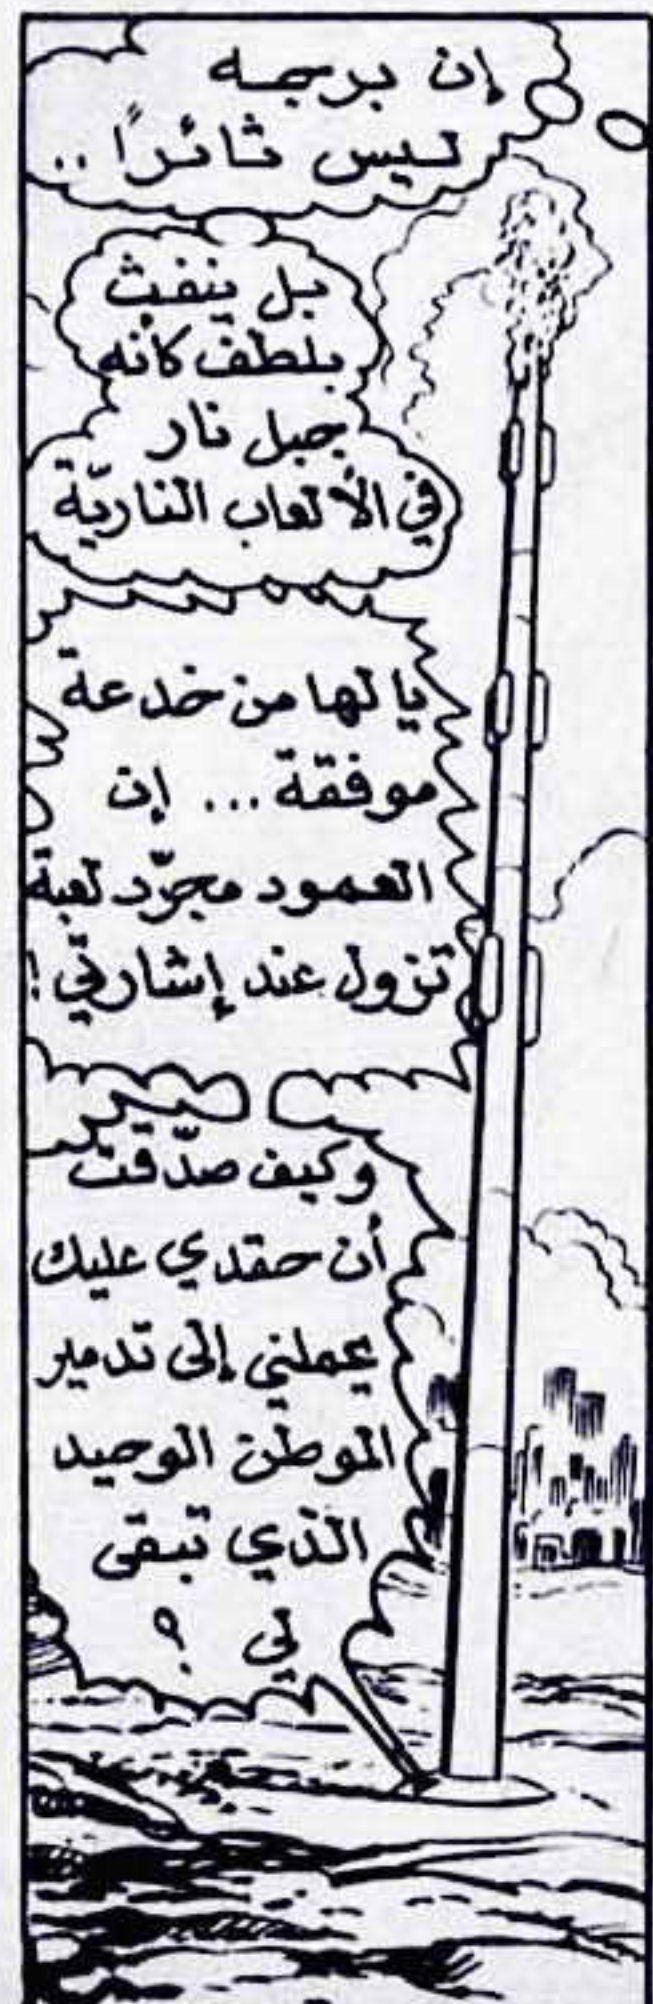 إن برجه
ليس ثائرًا ..
بل ينفث
بلطف كأنه
جبل نار
في الألعاب الناريّة
يا لها من خدعة
موفقة ... إن
العمود مجرّد لعبة
تزول عند إشارتي !
وكيف صدّقت
أن حقدي عليك
يحملني إلى تدمير
الموطن الوحيد
الذي تبقى
لي ؟